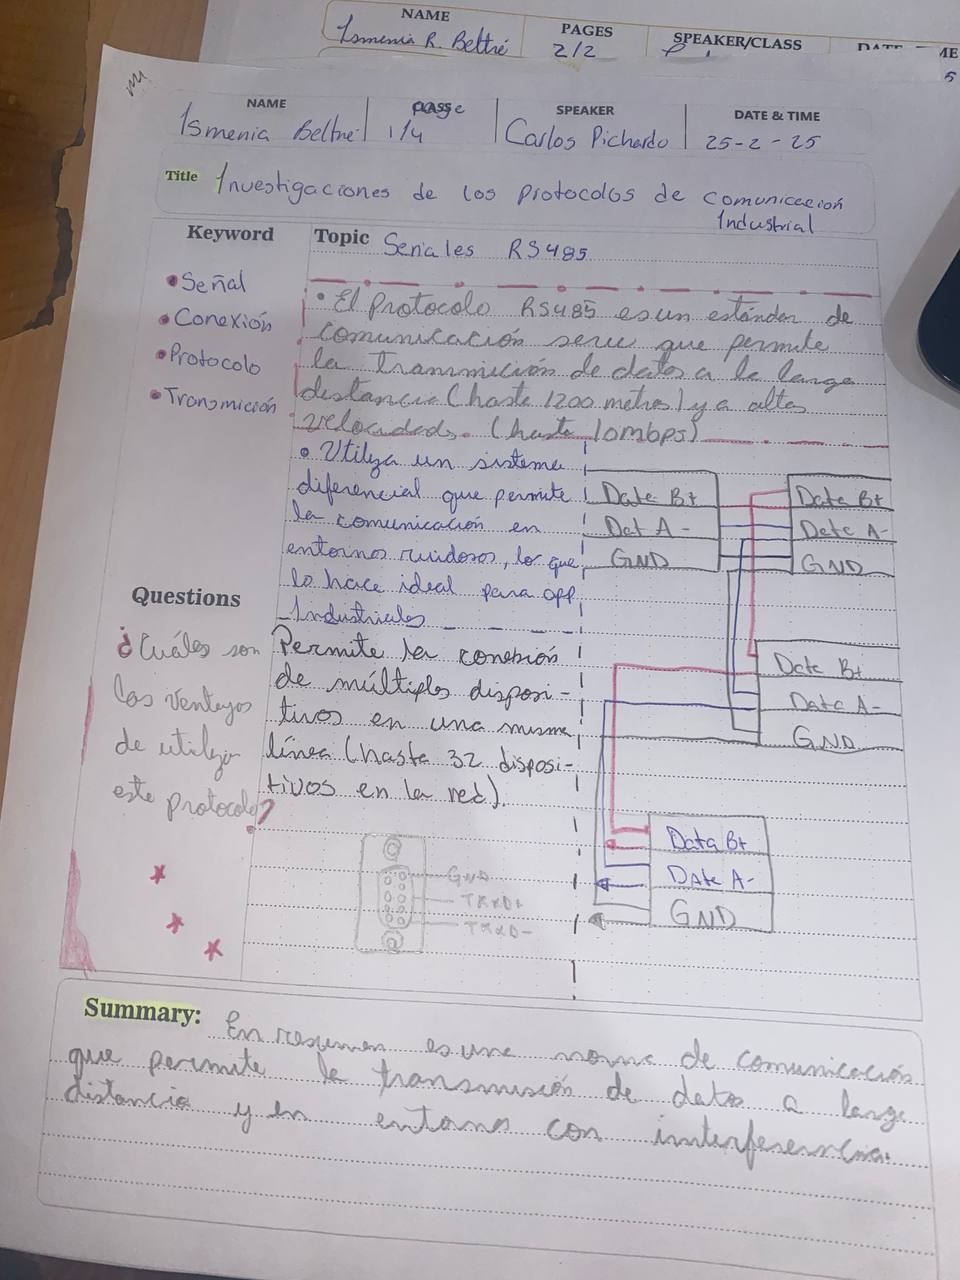 NAME
Ismenia R. Beltré
PAGES
2/2
SPEAKER/CLASS
NAME
Ismenia Beltré
page
1/4
SPEAKER
Carlos Pichardo
DATE & TIME
25-2-25
Title Investigaciones de los protocolos de comunicación
Industrial
Keyword
• Señal
• Conexión
• Protocolo
• Transmición
Topic Seriales RS485
• El Protocolo RS485 es un estándar de
comunicación que permite
la transmición de datos a la larga
distancia (hasta 1200 metros) y a altas
velocidads. (hasta 10mbps)
• Utiliza un sistema
diferencial que permite
la comunicación en
entornos ruidosos, lo que
lo hace ideal para app
Industriales
Permite la conexión
de múltiples disposi-
tivos en una misma
línea (hasta 32 disposi-
tivos en la red).
Data B+
Dat A-
GND
Data B+
Data A-
GND
Data B+
Data A-
GND
Data B+
Data A-
GND
GND
TRXD+
TRXD-
Questions
¿Cuáles son
las ventajas
de utilizar
este protocolo?
Summary: En resumen es una norma de comunicación
que permite la transmisión de datos a larga
distancia y en entornos con interferencia.